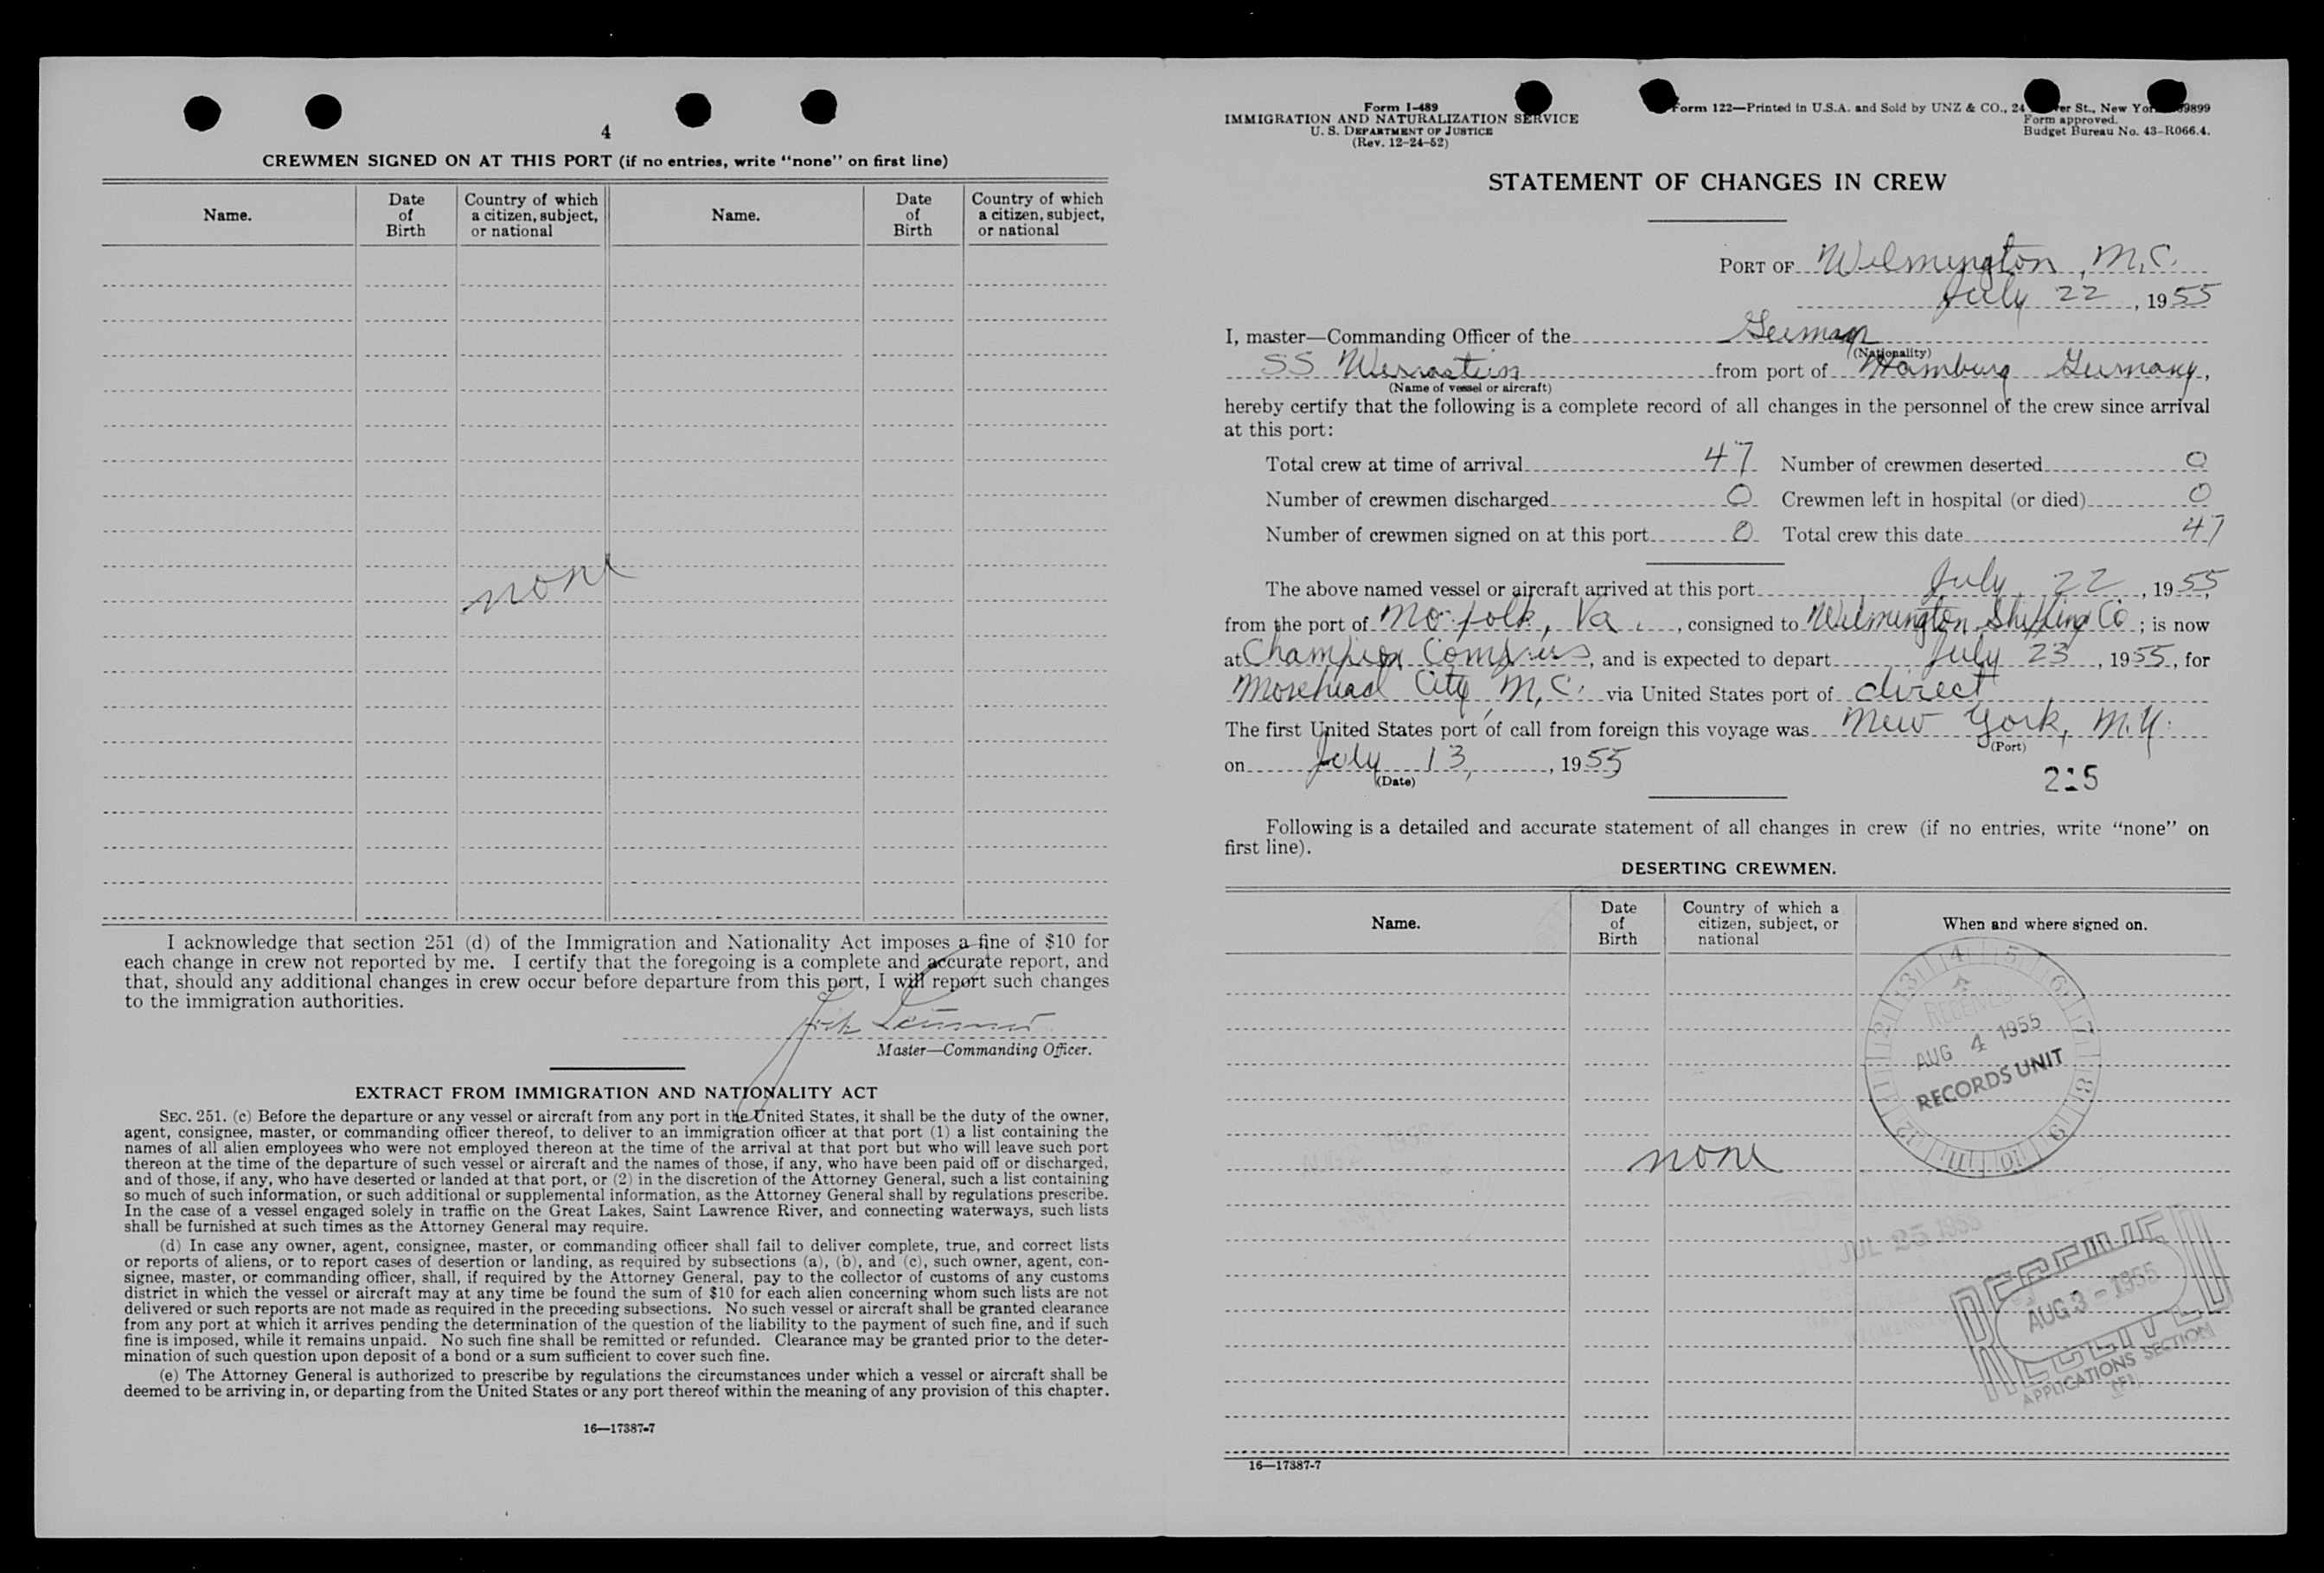 4
CREWMEN SIGNED ON AT THIS PORT (if no entries, write "none" on first line)
Name. Date of Birth Country of which a citizen, subject, or national Name. Date of Birth Country of which a citizen, subject, or national
none
I acknowledge that section 251 (d) of the Immigration and Nationality Act imposes a fine of $10 for
each change in crew not reported by me. I certify that the foregoing is a complete and accurate report, and
that, should any additional changes in crew occur before departure from this port, I will report such changes
to the immigration authorities.
Master—Commanding Officer.
EXTRACT FROM IMMIGRATION AND NATIONALITY ACT
SEC. 251. (c) Before the departure or any vessel or aircraft from any port in the United States, it shall be the duty of the owner,
agent, consignee, master, or commanding officer thereof, to deliver to an immigration officer at that port (1) a list containing the
names of all alien employees who were not employed thereon at the time of the arrival at that port but who will leave such port
thereon at the time of the departure of such vessel or aircraft and the names of those, if any, who have been paid off or discharged,
and of those, if any, who have deserted or landed at that port, or (2) in the discretion of the Attorney General, such a list containing
so much of such information, or such additional or supplemental information, as the Attorney General shall by regulations prescribe.
In the case of a vessel engaged solely in traffic on the Great Lakes, Saint Lawrence River, and connecting waterways, such lists
shall be furnished at such times as the Attorney General may require.
(d) In case any owner, agent, consignee, master, or commanding officer shall fail to deliver complete, true, and correct lists
or reports of aliens, or to report cases of desertion or landing, as required by subsections (a), (b), and (c), such owner, agent, con-
signee, master, or commanding officer, shall, if required by the Attorney General, pay to the collector of customs of any customs
district in which the vessel or aircraft may at any time be found the sum of $10 for each alien concerning whom such lists are not
delivered or such reports are not made as required in the preceding subsections. No such vessel or aircraft shall be granted clearance
from any port at which it arrives pending the determination of the question of the liability to the payment of such fine, and if such
fine is imposed, while it remains unpaid. No such fine shall be remitted or refunded. Clearance may be granted prior to the deter-
mination of such question upon deposit of a bond or a sum sufficient to cover such fine.
(e) The Attorney General is authorized to prescribe by regulations the circumstances under which a vessel or aircraft shall be
deemed to be arriving in, or departing from the United States or any port thereof within the meaning of any provision of this chapter.
16—17387-7
Form I-489
IMMIGRATION AND NATURALIZATION SERVICE
U. S. DEPARTMENT OF JUSTICE
(Rev. 12-24-52)
Form 122—Printed in U.S.A. and Sold by UNZ & CO., 24 St., New
Form approved.
Budget Bureau No. 43-R066.4.
STATEMENT OF CHANGES IN CREW
PORT OF Wilmington, N.C.
July 22, 1955
I, master—Commanding Officer of the German
(Nationality)
SS Werrastein from port of Hamburg Germany,
(Name of vessel or aircraft)
hereby certify that the following is a complete record of all changes in the personnel of the crew since arrival
at this port:
Total crew at time of arrival 47 Number of crewmen deserted 0
Number of crewmen discharged 0 Crewmen left in hospital (or died) 0
Number of crewmen signed on at this port 0 Total crew this date 47
The above named vessel or aircraft arrived at this port July 22, 1955,
from the port of Norfolk, Va., consigned to Wilmington Shipping Co; is now
at Champion Compress, and is expected to depart July 23, 1955, for
Morehead City, N.C. via United States port of direct
The first United States port of call from foreign this voyage was New York, N.Y.
(Port)
on July 13, 1955
(Date)
215
Following is a detailed and accurate statement of all changes in crew (if no entries, write "none" on
first line).
DESERTING CREWMEN.
Name. Date of Birth Country of which a citizen, subject, or national When and where signed on.
RECEIVED
AUG 4 1955
RECORDS UNIT
none
JUL 25 1955
RECEIVED
AUG 3 - 1955
APPLICATIONS SECTION
16—17387-7